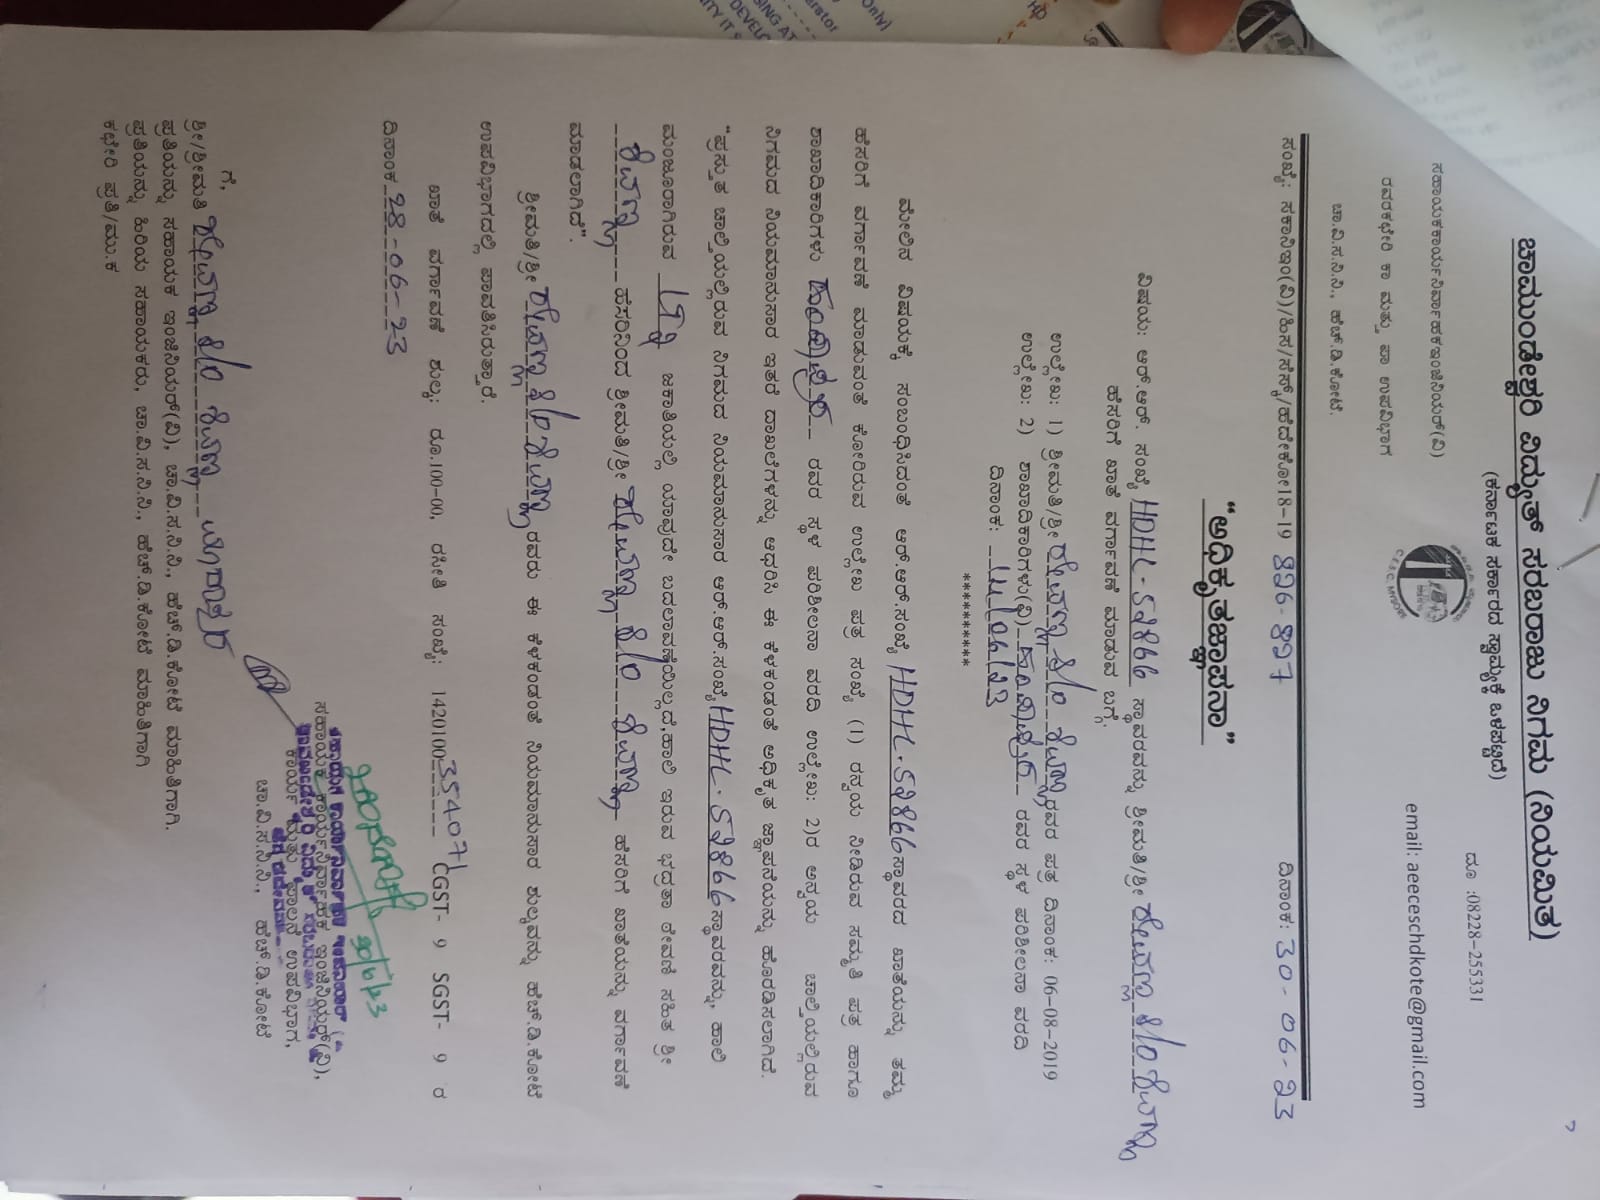 ಚಾಮುಂಡೇಶ್ವರಿ ವಿದ್ಯುತ್ ಸರಬರಾಜು ನಿಗಮ (ನಿಯಮಿತ)
(ಕರ್ನಾಟಕ ಸರ್ಕಾರದ ಸ್ವಾಮ್ಯಕ್ಕೆ ಒಳಪಟ್ಟಿದೆ)
ದೂ :08228-255331
ಸಹಾಯಕಕಾರ್ಯನಿರ್ವಾಹಕಇಂಜಿನಿಯರ್(ವಿ)
email: aeeceschdkote@gmail.com
ರವರಕಛೇರಿ ಕಾ ಮತ್ತು ಪಾ ಉಪವಿಭಾಗ
ಚಾ.ವಿ.ಸ.ನಿ.ನಿ., ಹೆಚ್.ಡಿ.ಕೋಟೆ.
ಸಂಖ್ಯೆ: ಸಕಾನಿಇಂ(ವಿ)/ಹಿಸ/ಸೆಸ್ಕ್/ಹೆದೇಕೋ18-19 896-897 ದಿನಾಂಕ: 30-06-23
"ಅಧಿಕೃತಜ್ಞಾಪನಾ"
ವಿಷಯ: ಆರ್.ಆರ್. ಸಂಖ್ಯೆ HDHL-59866 ಸ್ಥಾವರವನ್ನು ಶ್ರೀಮತಿ/ಶ್ರೀ
ಹೆಸರಿಗೆ ಖಾತೆ ವರ್ಗಾವಣೆ ಮಾಡುವ ಬಗ್ಗೆ.
ಉಲ್ಲೇಖ: 1) ಶ್ರೀಮತಿ/ಶ್ರೀ ರವರ ಪತ್ರ ದಿನಾಂಕ: 06-08-2019
ಉಲ್ಲೇಖ: 2) ಶಾಖಾದಿಕಾರಿಗಳು(ವಿ) ರವರ ಸ್ಥಳ ಪರಿಶೀಲನಾ ವರದಿ
ದಿನಾಂಕ: 14/06/23
*********
ಮೇಲಿನ ವಿಷಯಕ್ಕೆ ಸಂಬಂಧಿಸಿದಂತೆ ಆರ್.ಆರ್.ಸಂಖ್ಯೆ HDHL-59866 ಸ್ಥಾವರದ ಖಾತೆಯನ್ನು ತಮ್ಮ
ಹೆಸರಿಗೆ ವರ್ಗಾವಣೆ ಮಾಡುವಂತೆ ಕೋರಿರುವ ಉಲ್ಲೇಖ ಪತ್ರ ಸಂಖ್ಯೆ (1) ರನ್ವಯ ನೀಡಿರುವ ಸಮ್ಮತಿ ಪತ್ರ ಹಾಗೂ
ಶಾಖಾದಿಕಾರಿಗಳು ರವರ ಸ್ಥಳ ಪರಿಶೀಲನಾ ವರದಿ ಉಲ್ಲೇಖ: 2)ರ ಅನ್ವಯ ಚಾಲ್ತಿಯಲ್ಲಿರುವ
ನಿಗಮದ ನಿಯಮಾನುಸಾರ ಇತರೆ ದಾಖಲೆಗಳನ್ನು ಆಧರಿಸಿ ಈ ಕೆಳಕಂಡಂತೆ ಅಧಿಕೃತ ಜ್ಞಾಪನೆಯನ್ನು ಹೊರಡಿಸಲಾಗಿದೆ.
"ಪ್ರಸ್ತುತ ಚಾಲ್ತಿಯಲ್ಲಿರುವ ನಿಗಮದ ನಿಯಮಾನುಸಾರ ಆರ್.ಆರ್.ಸಂಖ್ಯೆ HDHL-59866 ಸ್ಥಾವರವನ್ನು, ಹಾಲಿ
ಮಂಜೂರಾಗಿರುವ ಜಕಾತಿಯಲ್ಲಿ ಯಾವುದೇ ಬದಲಾವಣೆಯಿಲ್ಲದೆ,ಹಾಲಿ ಇರುವ ಭದ್ರತಾ ಠೇವಣಿ ಸಹಿತ ಶ್ರೀ
ಹೆಸರಿನಿಂದ ಶ್ರೀಮತಿ/ಶ್ರೀ ಹೆಸರಿಗೆ ಖಾತೆಯನ್ನು ವರ್ಗಾವಣೆ
ಮಾಡಲಾಗಿದೆ".
ಶ್ರೀಮತಿ/ಶ್ರೀ ರವರು ಈ ಕೆಳಕಂಡಂತೆ ನಿಯಮಾನುಸಾರ ಶುಲ್ಕವನ್ನು ಹೆಚ್.ಡಿ.ಕೋಟೆ
ಉಪವಿಭಾಗದಲ್ಲಿ ಪಾವತಿಸಿರುತ್ತಾರೆ.
ಖಾತೆ ವರ್ಗಾವಣೆ ಶುಲ್ಕ: ರೂ.100-00, ರಸೀತಿ ಸಂಖ್ಯೆ: 1420100354071 CGST- 9 SGST- 9 ರ
ದಿನಾಂಕ 28-06-23
30/6/23
ಸಹಾಯಕ ಕಾರ್ಯನಿರ್ವಾಹಕ ಇಂಜಿನಿಯರ್(ವಿ),
ಕಾರ್ಯ ಮತ್ತು ಪಾಲನೆ ಉಪವಿಭಾಗ,
ಚಾ.ವಿ.ಸ.ನಿ.ನಿ., ಹೆಚ್.ಡಿ.ಕೋಟೆ
ಗೆ,
ಶ್ರೀ/ಶ್ರೀಮತಿ
ಪ್ರತಿಯನ್ನು ಸಹಾಯಕ ಇಂಜಿನಿಯರ್(ವಿ), ಚಾ.ವಿ.ಸ.ನಿ.ನಿ., ಹೆಚ್.ಡಿ.ಕೋಟೆ ಮಾಹಿತಿಗಾಗಿ.
ಪ್ರತಿಯನ್ನು ಹಿರಿಯ ಸಹಾಯಕರು, ಚಾ.ವಿ.ಸ.ನಿ.ನಿ., ಹೆಚ್.ಡಿ.ಕೋಟೆ ಮಾಹಿತಿಗಾಗಿ
ಕಛೇರಿ ಪ್ರತಿ/ಮು.ಕ